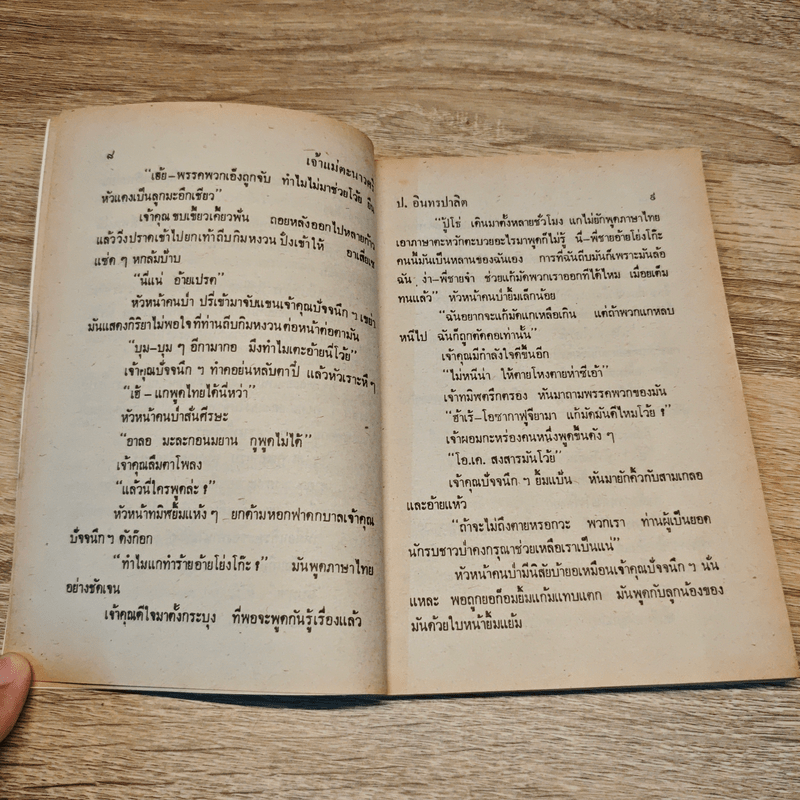 ๘
เจ้าแม่ตะนาวศรี
“เฮ้ย-พรรคพวกเอ็งถูกจับ ทำไมไม่มาช่วยโว้ย ยืน
หัวแดงเป็นลูกมะอึกเชียว”
เจ้าคุณขบเขี้ยวเคี้ยวฟัน ถอยหลังออกไปหลายก้าว
แล้ววิ่งปราดเข้าไปยกเท้าถีบกิมหงวน ปังเข้าให้ อาเสี่ยเซ
แซ่ด ๆ หกล้มป้าบ
“นี่แน่ อ้ายเปรต”
หัวหน้าคนป่า ปรี่เข้ามาจับแขนเจ้าคุณปัจจนึก ฯ เขย่า
มันแสดงกิริยาไม่พอใจที่ท่านถีบกิมหงวนต่อหน้าต่อตามัน
“บุม-บุม ๆ อีกามากอ มึงทำไมเตะอ้ายนี่โว้ย”
เจ้าคุณปัจจนึก ฯ ทำคอย่นหลับตาปี๋ แล้วหัวเราะหึ ๆ
“เฮ้ - แกพูดไทยได้นี่หว่า”
หัวหน้าคนป่าสั่นศีรษะ
“อาลอ มะละกอนมยาน กูพูดไม่ได้”
เจ้าคุณลืมตาโพลง
“แล้วนี่ใครพูดล่ะ ?”
หัวหน้าทมิฬยิ้มแห้ง ๆ ยกด้ามหอกฟาดกบาลเจ้าคุณ
ปัจจนึก ฯ ดังก๊อก
“ทำไมแกทำร้ายอ้ายโย่งโก๊ะ ?” มันพูดภาษาไทย
อย่างชัดเจน
เจ้าคุณดีใจมาตั้งกระบุง ที่พอจะพูดกันรู้เรื่องแล้ว
ป. อินทรปาลิต
๙
“ปู้โธ่ เดินมาตั้งหลายชั่วโมง แกไม่ยักพูดภาษาไทย
เอาภาษาตะหวักตะบวยอะไรมาพูดก็ไม่รู้ นี่-พี่ชายอ้ายโย่งโก๊ะ
คนนี้มันเป็นหลานของฉันเอง การที่ฉันถีบมันก็เพราะมันล้อ
ฉัน ง่า-พี่ชายจ๋า ช่วยแก้มัดพวกเราออกทีได้ไหม เมื่อยเต็ม
ทนแล้ว” หัวหน้าคนป่ายิ้มเล็กน้อย
“ฉันอยากจะแก้มัดแกเหลือเกิน แต่ถ้าพวกแกหลบ
หนีไป ฉันก็ถูกตัดคอเท่านั้น”
เจ้าคุณมีกำลังใจดีขึ้นอีก
“ไม่หนีน่า ให้ตายโหงตายห่าซีเอ้า”
เจ้าทมิฬตรึกตรอง หันมาถามพรรคพวกของมัน
“ฮ้าเร้-โอซากาฟูจียามา แก้มัดมันดีไหมโว้ย ?”
เจ้าผอมกะหร่องคนหนึ่งพูดขึ้นดัง ๆ
“โอ.เค. สงสารมันโว้ย”
เจ้าคุณปัจจนึก ฯ ยิ้มแป้น หันมายักคิ้วกับสามเกลอ
และอ้ายแห้ว
“ถ้าจะไม่ถึงตายหรอกวะ พวกเรา ท่านผู้เป็นยอด
นักรบชาวป่าคงกรุณาช่วยเหลือเราเป็นแน่”
หัวหน้าคนป่ามีนิสัยบ้ายอเหมือนเจ้าคุณปัจจนึก ฯ นั่น
แหละ พอถูกยอก็อมยิ้มแก้มแทบแตก มันพูดกับลูกน้องของ
มันด้วยใบหน้ายิ้มแย้ม